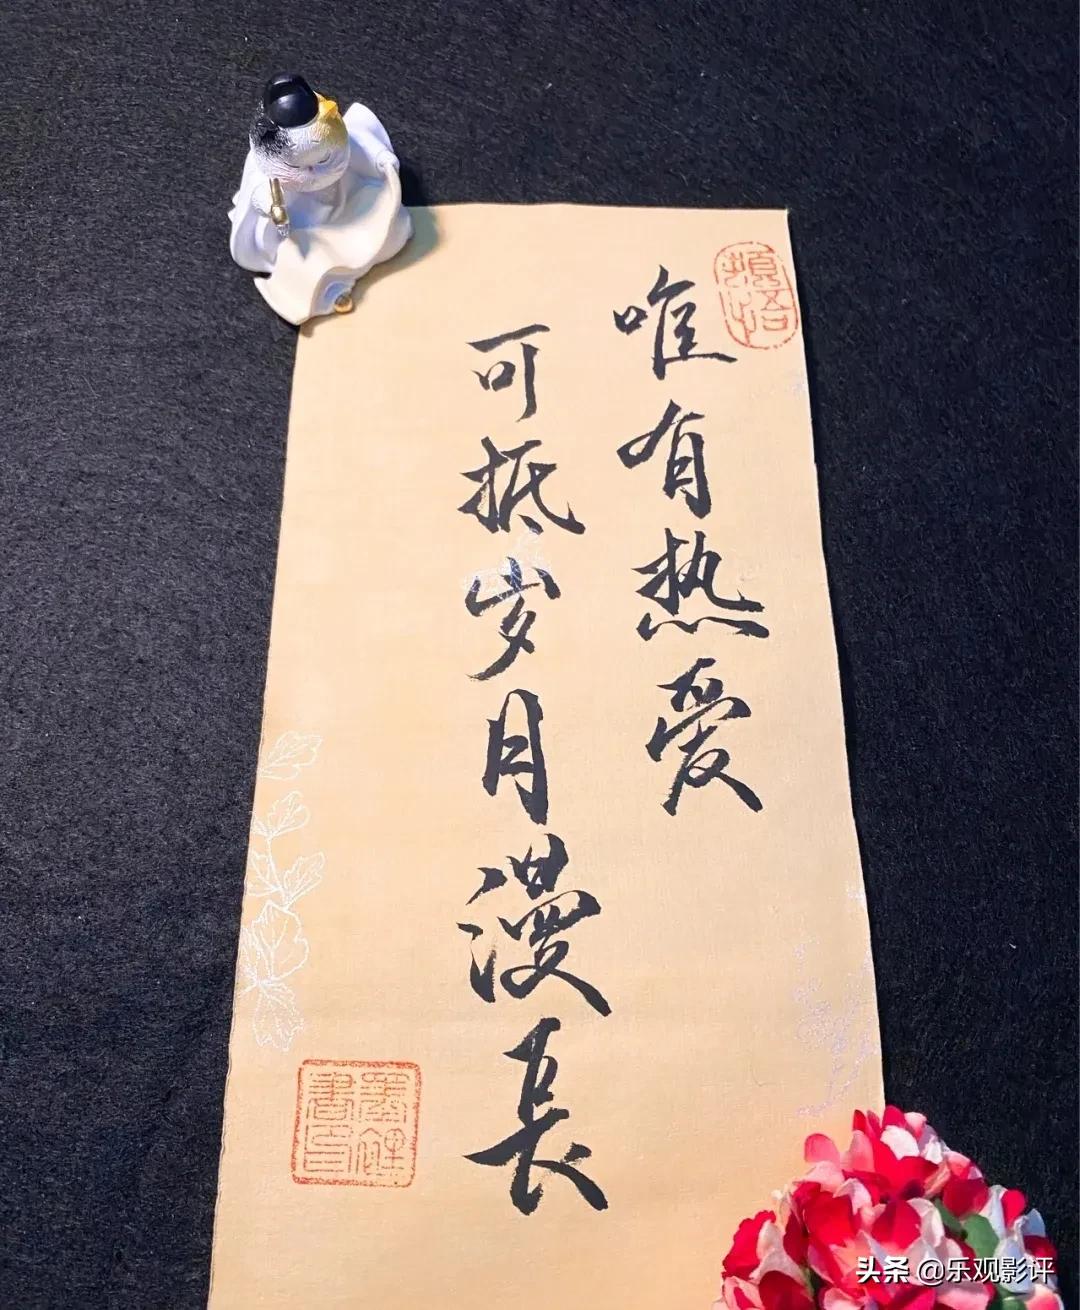 唯有热爱
可抵岁月漫长
头条 @乐观影评